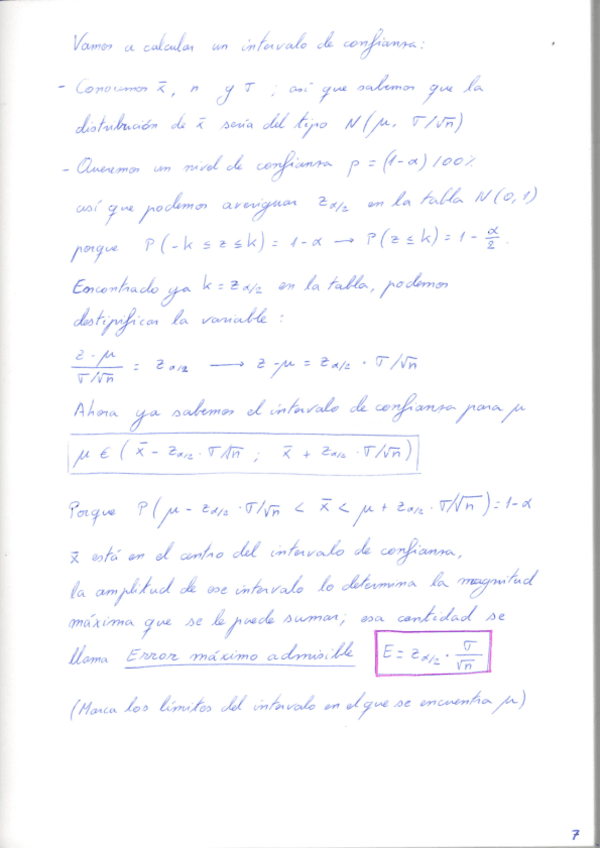 Vamos a calcular un intervalo de confianza:
- Conocemos x̄, n y σ ; así que sabemos que la
distribución de x̄ sería del tipo N(μ, σ/√n)
- Queremos un nivel de confianza p = (1-α)100%
así que podemos averiguar z_α/2 en la tabla N(0,1)
porque P(-k ≤ z ≤ k) = 1-α → P(z ≤ k) = 1 - α/2.
Encontrado ya k = z_α/2 en la tabla, podemos
destipificar la variable:
(z - μ)/(σ/√n) = z_α/2 → z - μ = z_α/2 · σ/√n
Ahora ya sabemos el intervalo de confianza para μ
μ ∈ (x̄ - z_α/2 · σ/√n ; x̄ + z_α/2 · σ/√n)
Porque P(μ - z_α/2 · σ/√n < x̄ < μ + z_α/2 · σ/√n) = 1-α
x̄ está en el centro del intervalo de confianza,
la amplitud de ese intervalo lo determina la magnitud
máxima que se le puede sumar; esa cantidad se
llama Error máximo admisible E = z_α/2 · σ/√n
(Marca los límites del intervalo en el que se encuentra μ)
7